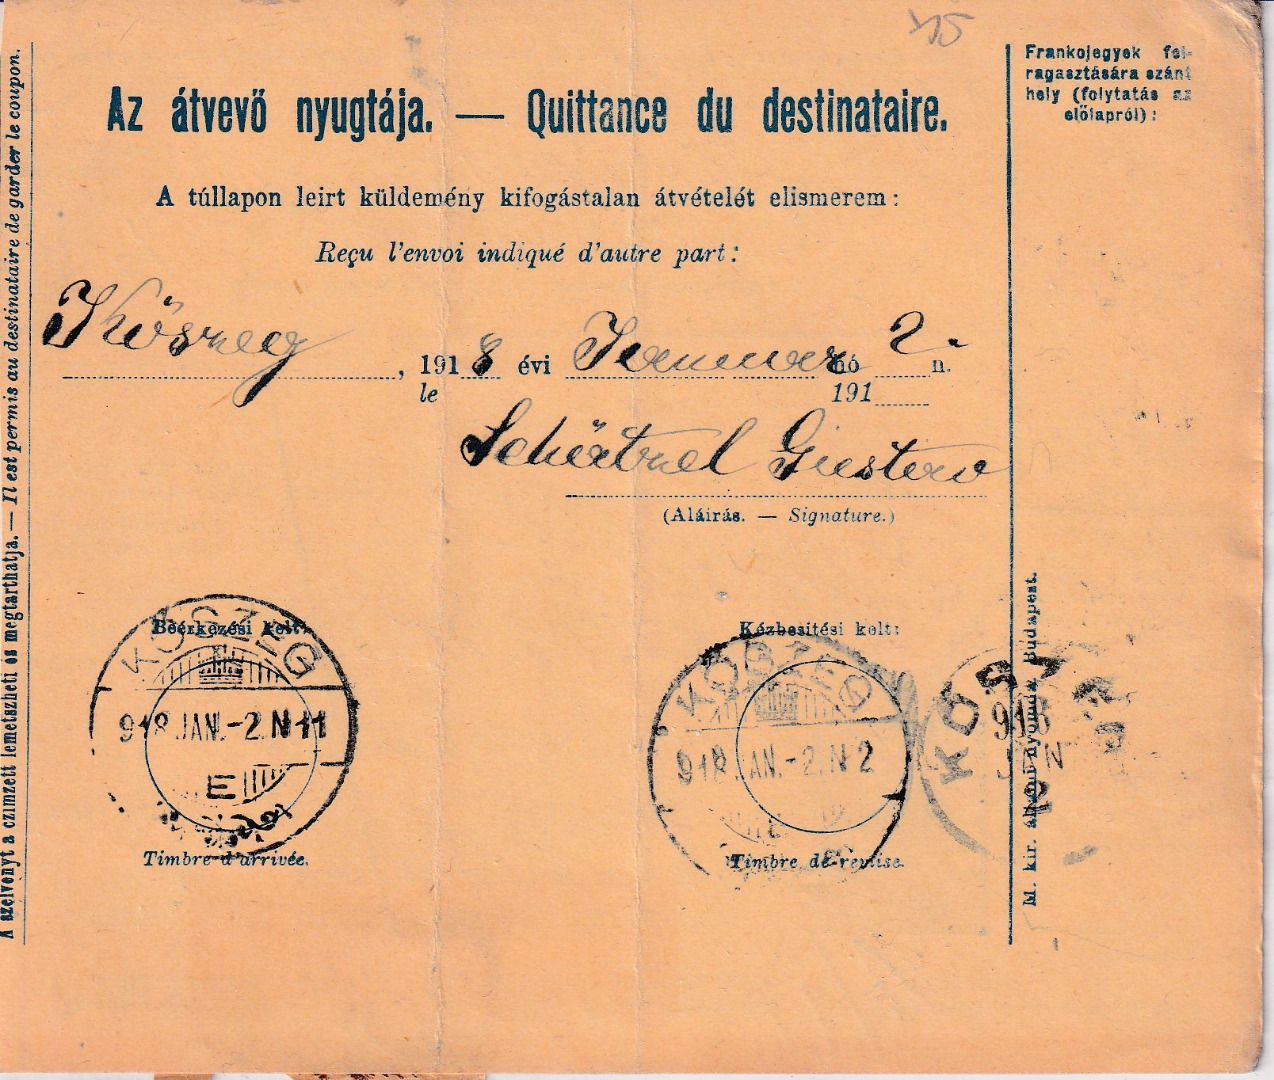 Az átvevő nyugtája. — Quittance du destinataire.
A túllapon leirt küldemény kifogástalan átvételét elismerem:
Reçu l'envoi indiqué d'autre part:
Kőszeg, 1918 évi Januar hó 2. n.
le 191
(Aláirás. — Signature.)
Beérkezési kelt:
KŐSZEG
918 JAN.-2.N11
E
Timbre d'arrivée.
Kézbesitési kelt:
KŐSZEG
918 JAN.-2.N 2
Timbre de remise.
Frankojegyek fel-
ragasztására szánt
hely (folytatás az
előlapról):
918
M. kir. állami nyomda, Budapest.
A szelvényt a czimzett lemetszheti és megtarthatja. — Il est permis au destinataire de garder le coupon.